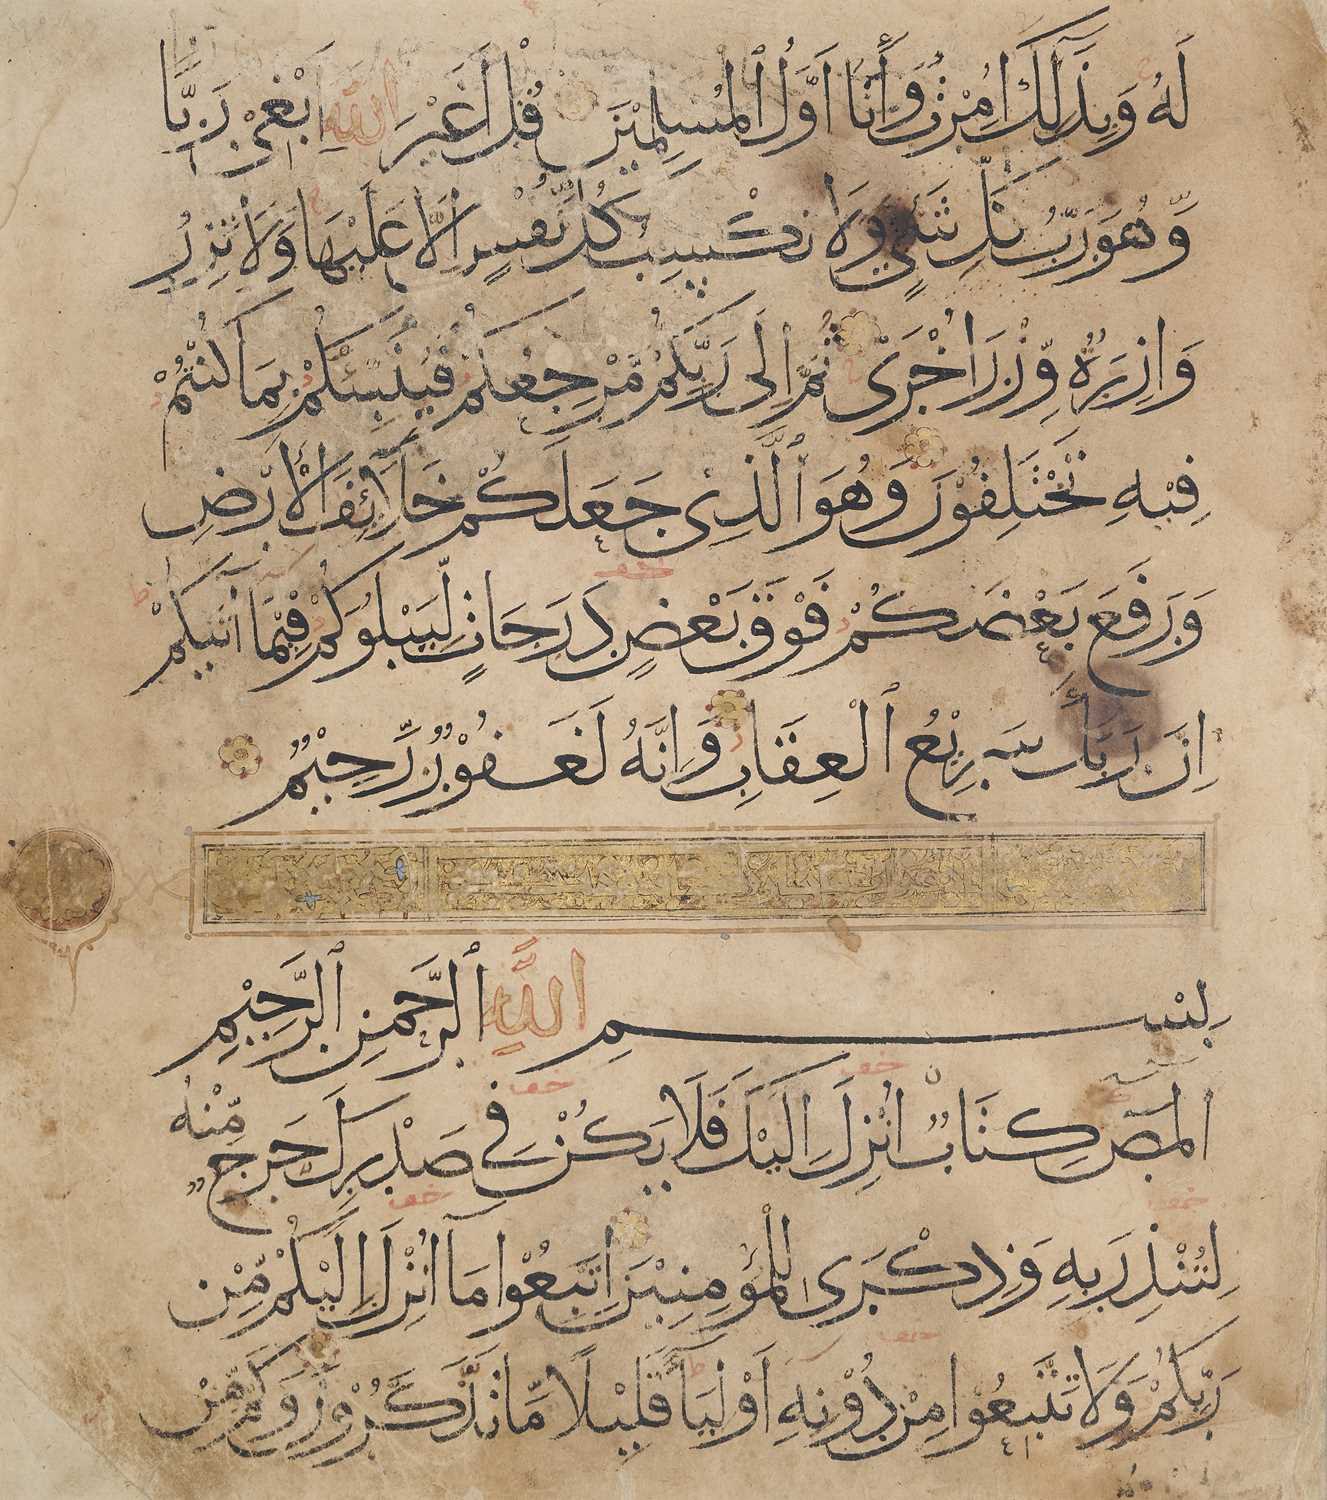 لَهُ وَبِذَلِكَ أُمِرْتُ وَأَنَا أَوَّلُ الْمُسْلِمِيْنَ قُلْ أَغَيْرَ اللَّهِ أَبْغِيْ رَبًّا
وَّهُوَ رَبُّ كُلِّ شَيْءٍ وَلَا تَكْسِبُ كُلُّ نَفْسٍ اِلَّا عَلَيْهَا وَلَا تَزِرُ
وَازِرَةٌ وِّزْرَ اُخْرَىٰ ثُمَّ اِلَى رَبِّكُمْ مَّرْجِعُكُمْ فَيُنَبِّئُكُمْ بِمَا كُنْتُمْ
فِيْهِ تَخْتَلِفُوْنَ وَهُوَ الَّذِيْ جَعَلَكُمْ خَلَائِفَ الْأَرْضِ
وَرَفَعَ بَعْضَكُمْ فَوْقَ بَعْضٍ دَرَجَاتٍ لِّيَبْلُوَكُمْ فِيْمَا آتَيكُمْ
اِنَّ رَبَّكَ سَرِيْعُ الْعِقَابِ وَاِنَّهُ لَغَفُوْرٌ رَّحِيْمٌ
بِسْمِ اللَّهِ الرَّحْمَنِ الرَّحِيْمِ
الٓمٓصٓ كِتَابٌ اُنْزِلَ اِلَيْكَ فَلَا يَكُنْ فِي صَدْرِكَ حَرَجٌ مِّنْهُ
لِتُنْذِرَ بِهِ وَذِكْرَى لِلْمُؤْمِنِيْنَ اِتَّبِعُوْا مَآ اُنْزِلَ اِلَيْكُمْ مِّنْ
رَّبِّكُمْ وَلَا تَتَّبِعُوْا مِنْ دُوْنِهِ أَوْلِيَآءَ قَلِيْلًا مَّا تَذَّكَّرُوْنَ وَكَمْ مِّنْ